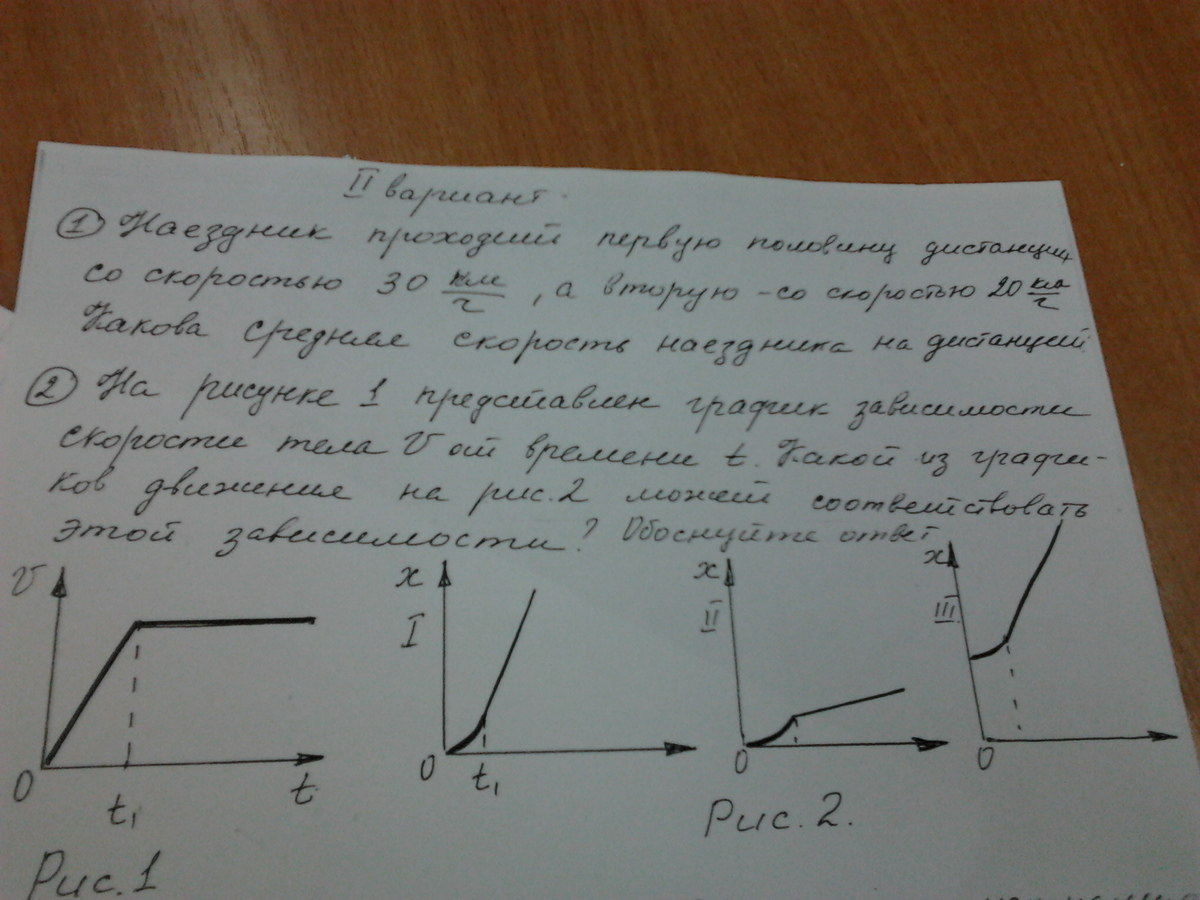 II вариант.
① Наездник проходит первую половину дистанции
со скоростью 30 км/ч, а вторую - со скоростью 20 км/ч
Какова средняя скорость наездника на дистанции
② На рисунке 1 представлен график зависимости
скорости тела V от времени t. Какой из графи-
ков движения на рис.2 может соответствовать
этой зависимости? Обоснуйте ответ
V
x
x
x
I
II
III
0
t₁
t
0
t₁
0
0
Рис. 1
Рис. 2.